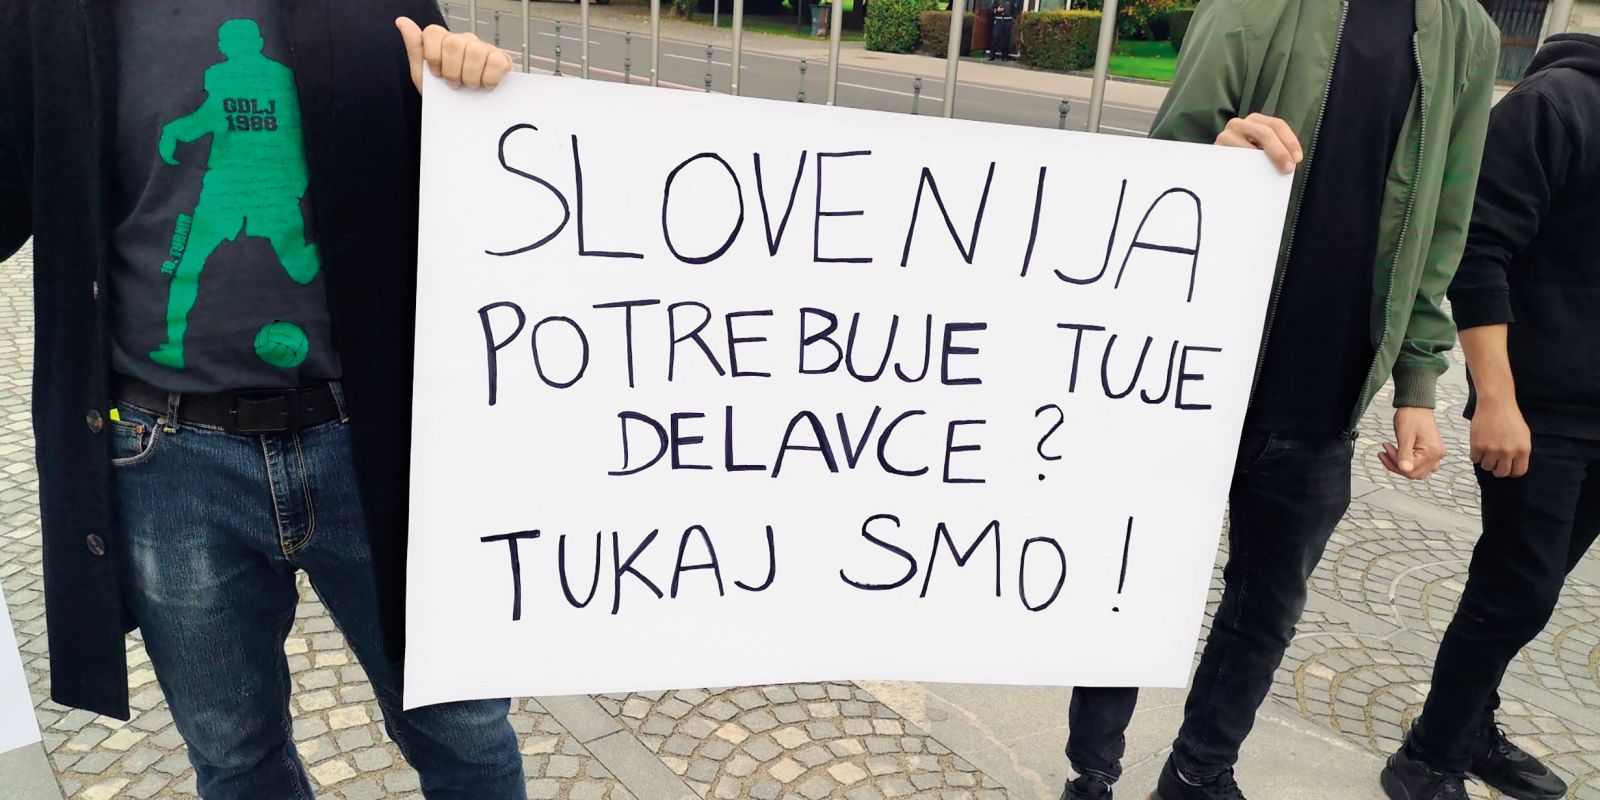 GDLJ
1988
10. TURNIR
SLOVENIJA
POTREBUJE TUJE
DELAVCE ?
TUKAJ SMO !